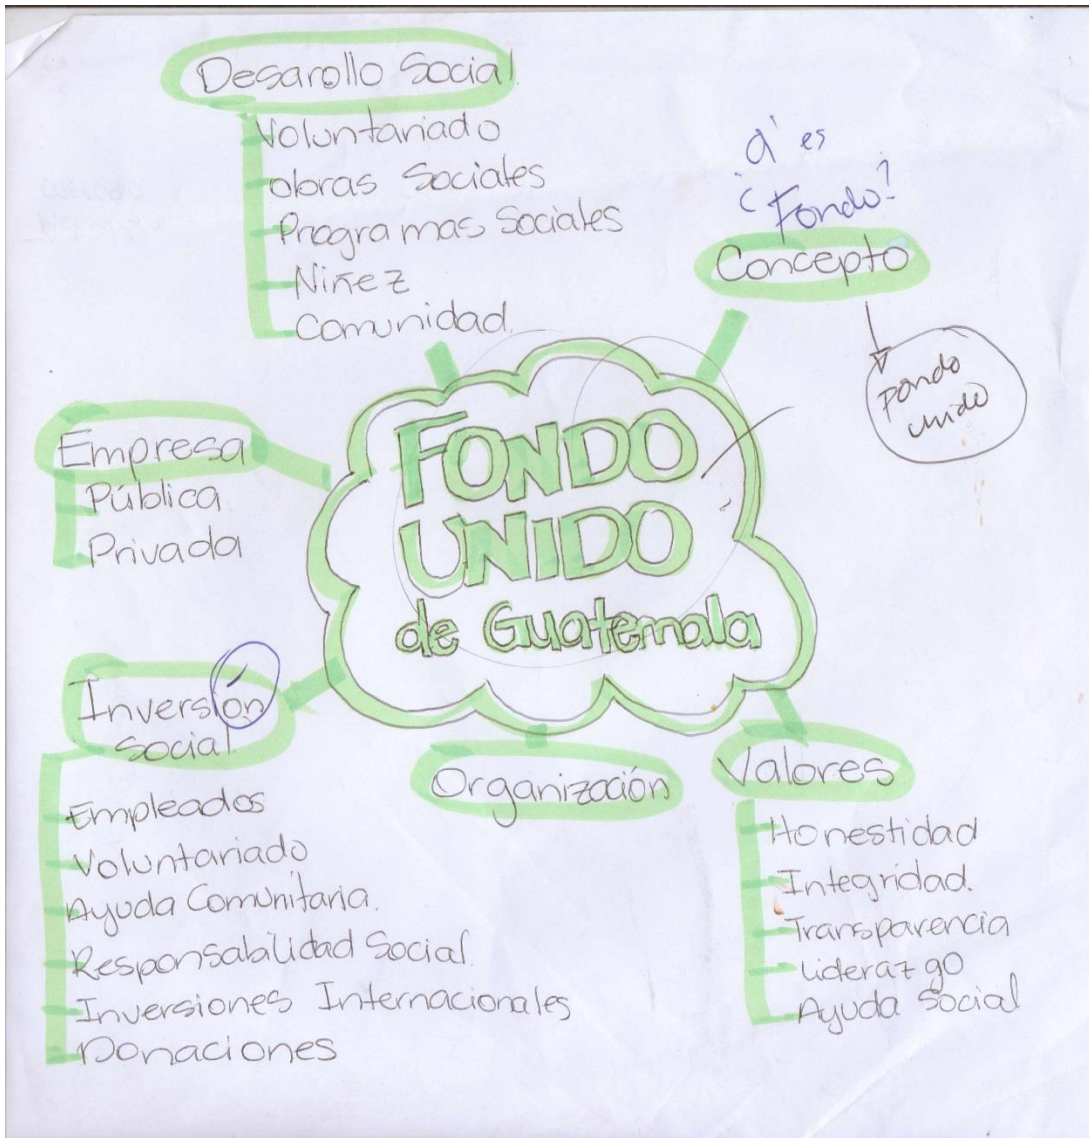 Desarollo Social
Voluntariado
obras Sociales
Programas Sociales
Niñez
Comunidad.
q' es
¿Fondo?
Concepto
Fondo
unido
FONDO
UNIDO
de Guatemala
Empresa
Pública
Privada
Inversión
Social
Empleados
Voluntariado
Ayuda Comunitaria.
Responsabilidad Social.
Inversiones Internacionales
Donaciones
Organización
Valores
Honestidad
Integridad.
Transparencia
Liderazgo
Ayuda Social